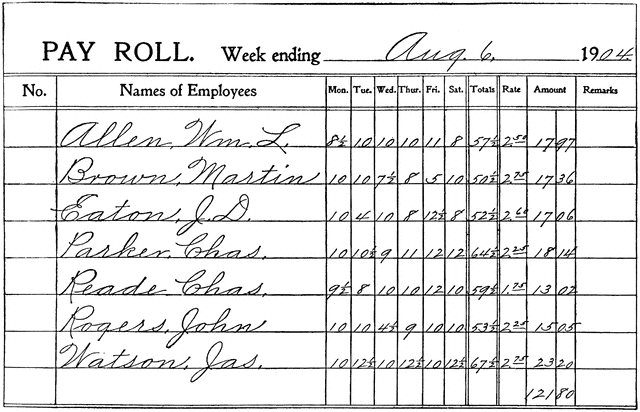 PAY ROLL. Week ending Aug. 6, 1904.
No. Names of Employees Mon. Tue. Wed. Thur. Fri. Sat. Totals Rate Amount Remarks
Allen, Wm. L. 8½ 10 10 10 11 8 57½ 2.50 17 97
Brown, Martin 10 10 7½ 8 5 10 50½ 2.75 17 36
Eaton, J. D. 10 4 10 8 12½ 8 52½ 2.60 17 06
Parker, Chas. 10 10½ 9 11 12 12 64½ 2.25 18 14
Reade Chas. 9½ 8 10 10 12 10 59½ 1.75 13 02
Rogers, John 10 10 4½ 9 10 10 53½ 2.25 15 05
Watson, Jas. 10 12½ 10 12½ 10 12½ 67½ 2.75 23 20
121 80